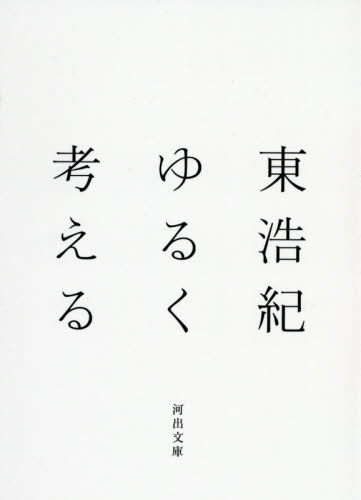 東浩紀
ゆるく
考える
河出文庫